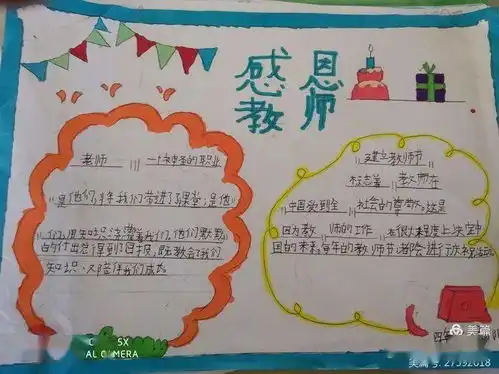 感恩
教师
老师 一个神圣的职业
是他们,将我们带进了课堂;是他
们,用知识浇灌着我们,他们默默
的付出总得到回报,既教会了我们
知识,又陪伴我们成长
建立教师节
标志着 教师在
中国受到全 社会的尊敬。这是
因为教 师的工作 在很大程度上决定中
国的未来,每年的教师节都会进行庆祝活动
四年
5X
AL CAMERA
美篇
美篇号:27592018